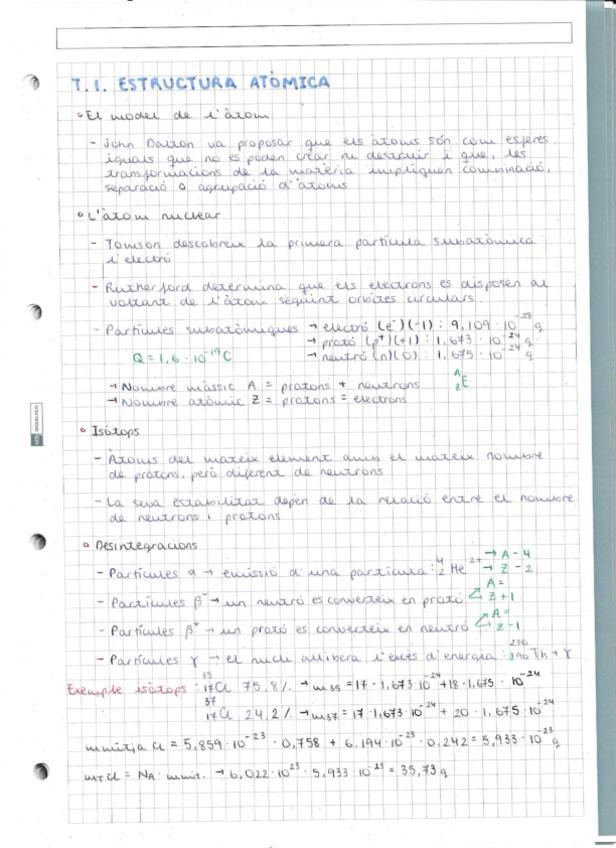 T.1. ESTRUCTURA ATÒMICA
El model de l'àtom
- John Dalton va proposar que els àtoms són com esferes
iguals que no es poden crear ni destruir i que, les
transformacions de la matèria impliquen combinació,
separació o agrupació d'àtoms
L'àtom nuclear
- Tomson descobreix la primera partícula subatòmica:
l'electró
- Rutherford determina que els electrons es disposen al
voltant de l'àtom seguint orbites circulars.
- Partícules subatòmiques → electró (e⁻)(-1) : 9,109·10⁻²⁸ g
→ protó (p⁺)(+1) : 1,673·10⁻²⁴ g
Q = 1,6·10⁻¹⁹ C → neutró (n)(0) : 1,675·10⁻²⁴ g
→ Nombre màssic A = protons + neutrons ᴬE
→ Nombre atòmic Z = protons = electrons Z
Isòtops
- Àtoms del mateix element amb el mateix nombre
de protons, però diferent de neutrons
- La seva estabilitat depèn de la relació entre el nombre
de neutrons i protons
Desintegracions
- Partícules α → emissió d'una partícula : ⁴₂He²⁺ → A-4
→ Z-2
- Partícules β⁻ → un neutró es converteix en protó A=
Z+1
- Partícules β⁺ → un protó es converteix en neutró A=
Z-1
- Partícules γ → el nucli allibera l'excés d'energia : ²³⁰₉₀Th + γ
Exemple isòtops : ³⁵₁₇Cl 75,8% → m₃₅ = 17·1,673·10⁻²⁴ + 18·1,675·10⁻²⁴
³⁷₁₇Cl 24,2% → m₃₇ = 17·1,673·10⁻²⁴ + 20·1,675·10⁻²⁴
m mitja Cl = 5,859·10⁻²³ · 0,758 + 6,194·10⁻²³ · 0,242 = 5,933·10⁻²³ g
m_T Cl = N_A · m mit. → 6,022·10²³ · 5,933·10⁻²³ = 35,73 g